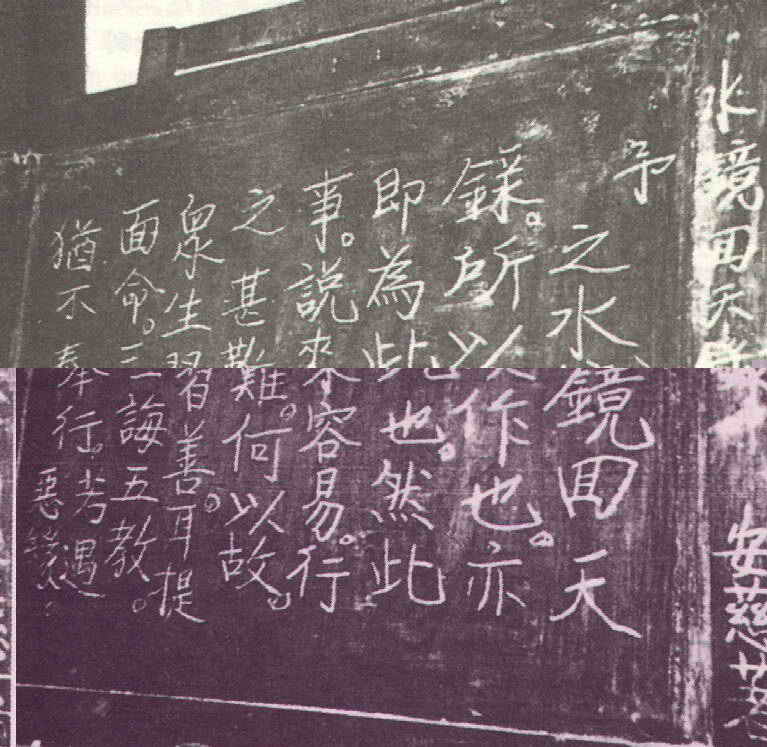 水鏡回天錄
安慈著
予
之水鏡回天
錄。所以作也。亦
即為此也。然此
事。說來容易。行
之甚難。何以故。
眾生習善。耳提
面命。三誨五教。
猶不奉行。若遇
惡緣。